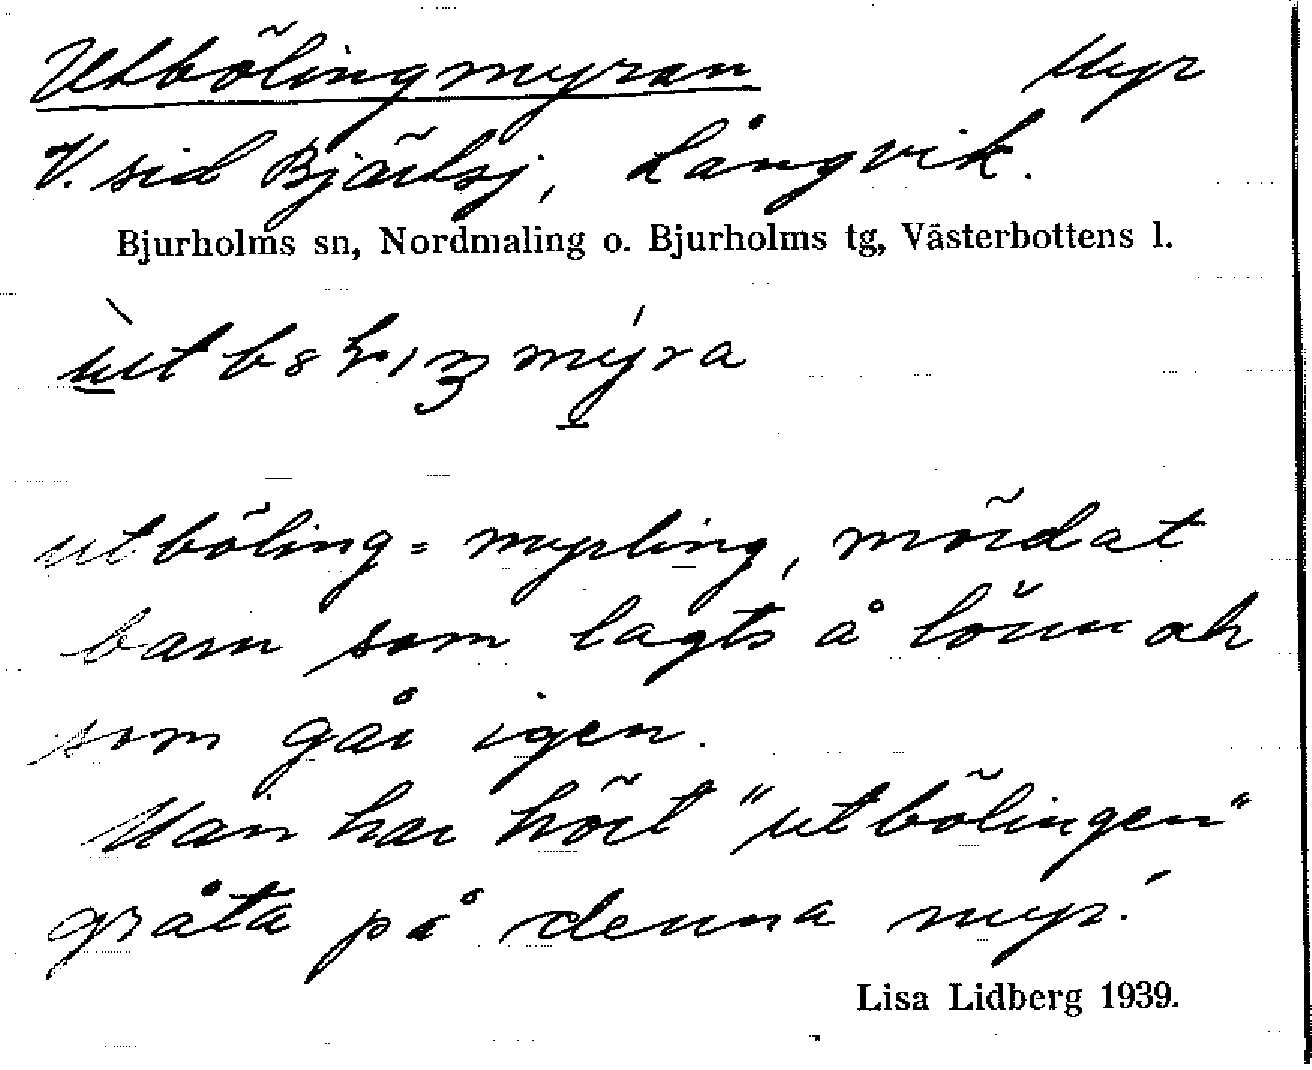 Utbölingmyran Myr
V. sid Bjärtsj, Långvik.
Bjurholms sn, Nordmaling o. Bjurholms tg, Västerbottens l.
utböling = myrling, mördat
barn som lagts å lönn och
som går igen.
Man har hört "utbölingen"
gråta på denna myr.
Lisa Lidberg 1939.